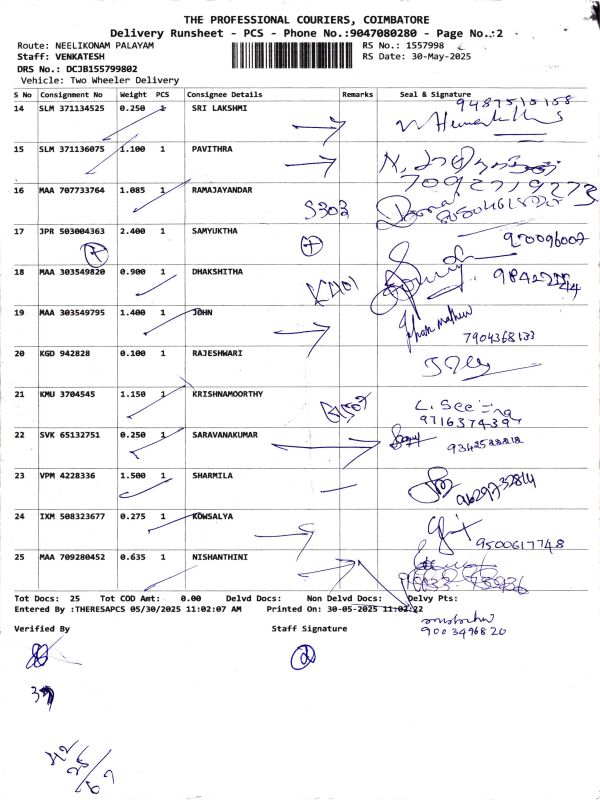 THE PROFESSIONAL COURIERS, COIMBATORE
Delivery Runsheet - PCS - Phone No.:9047080280 - Page No.:2
Route: NEELIKONAM PALAYAM RS No.: 1557998
Staff: VENKATESH RS Date: 30-May-2025
DRS No.: DCJB155799802
Vehicle: Two Wheeler Delivery
S No Consignment No Weight PCS Consignee Details Remarks Seal & Signature
14 SLM 371134525 0.250 1 SRI LAKSHMI
15 SLM 371136075 1.100 1 PAVITHRA
7092719273
16 MAA 707733764 1.085 1 RAMAJAYANDAR S303
17 JPR 503004363 2.400 1 SAMYUKTHA 920096007
18 MAA 303549820 0.900 1 DHAKSHITHA K401
19 MAA 303549795 1.400 1 JOHN John mathew
7904368133
20 KGD 942828 0.100 1 RAJESHWARI
21 KMU 3704545 1.150 1 KRISHNAMOORTHY
9716374397
22 SVK 65132751 0.250 1 SARAVANAKUMAR
23 VPM 4228336 1.500 1 SHARMILA
24 IXM 508323677 0.275 1 KOWSALYA
9500617748
25 MAA 709280452 0.635 1 NISHANTHINI
Tot Docs: 25 Tot COD Amt: 0.00 Delvd Docs: Non Delvd Docs: Delvy Pts:
Entered By :THERESAPCS 05/30/2025 11:02:07 AM Printed On: 30-05-2025 11:02:22
Verified By Staff Signature
9003496820